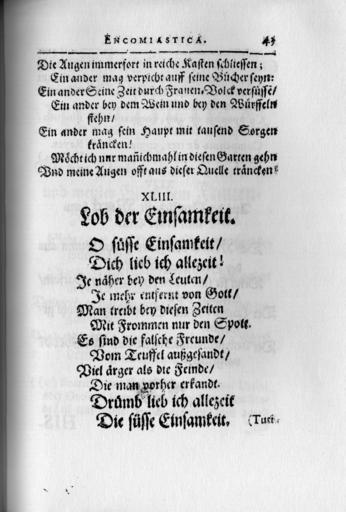 ENCOMIASTICA. 43
Die Augen immerfort in reiche Kasten schliessen;
Ein ander mag verpicht auff seine Bücher seyn:
Ein ander Seine Zeit durch Frauen-Volck versüsse/
Ein ander bey dem Wein und bey den Würffeln
stehn/
Ein ander mag sein Haupt mit tausend Sorgen
kräncken!
Möcht ich nur mañichmahl in diesen Garten gehn
Vnd meine Augen offt aus dieser Quelle träncken!
XLIII.
Lob der Einsamkeit.
O süsse Einsamkeit/
Dich lieb ich allezeit!
Je näher bey den Leuten/
Je mehr entfernt von Gott/
Man treibt bey diesen Zeiten
Mit Frommen nur den Spott.
Es sind die falsche Freunde/
Vom Teuffel außgesandt/
Viel ärger als die Feinde/
Die man vorher erkandt.
Drümb lieb ich allezeit
Die süsse Einsamkeit. (Tuet.